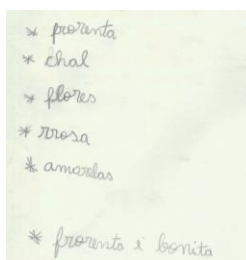 * prorenta
* chal
* flores
* rrosa
* amarelas
* frorenta i bonita